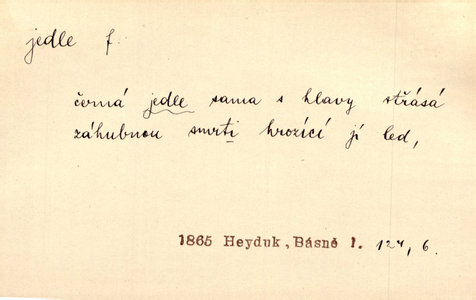 jedle f.
černá jedle sama s hlavy střásá
záhubnou smrti hrozící jí led,
1865 Heyduk, Básně 1. 124, 6.